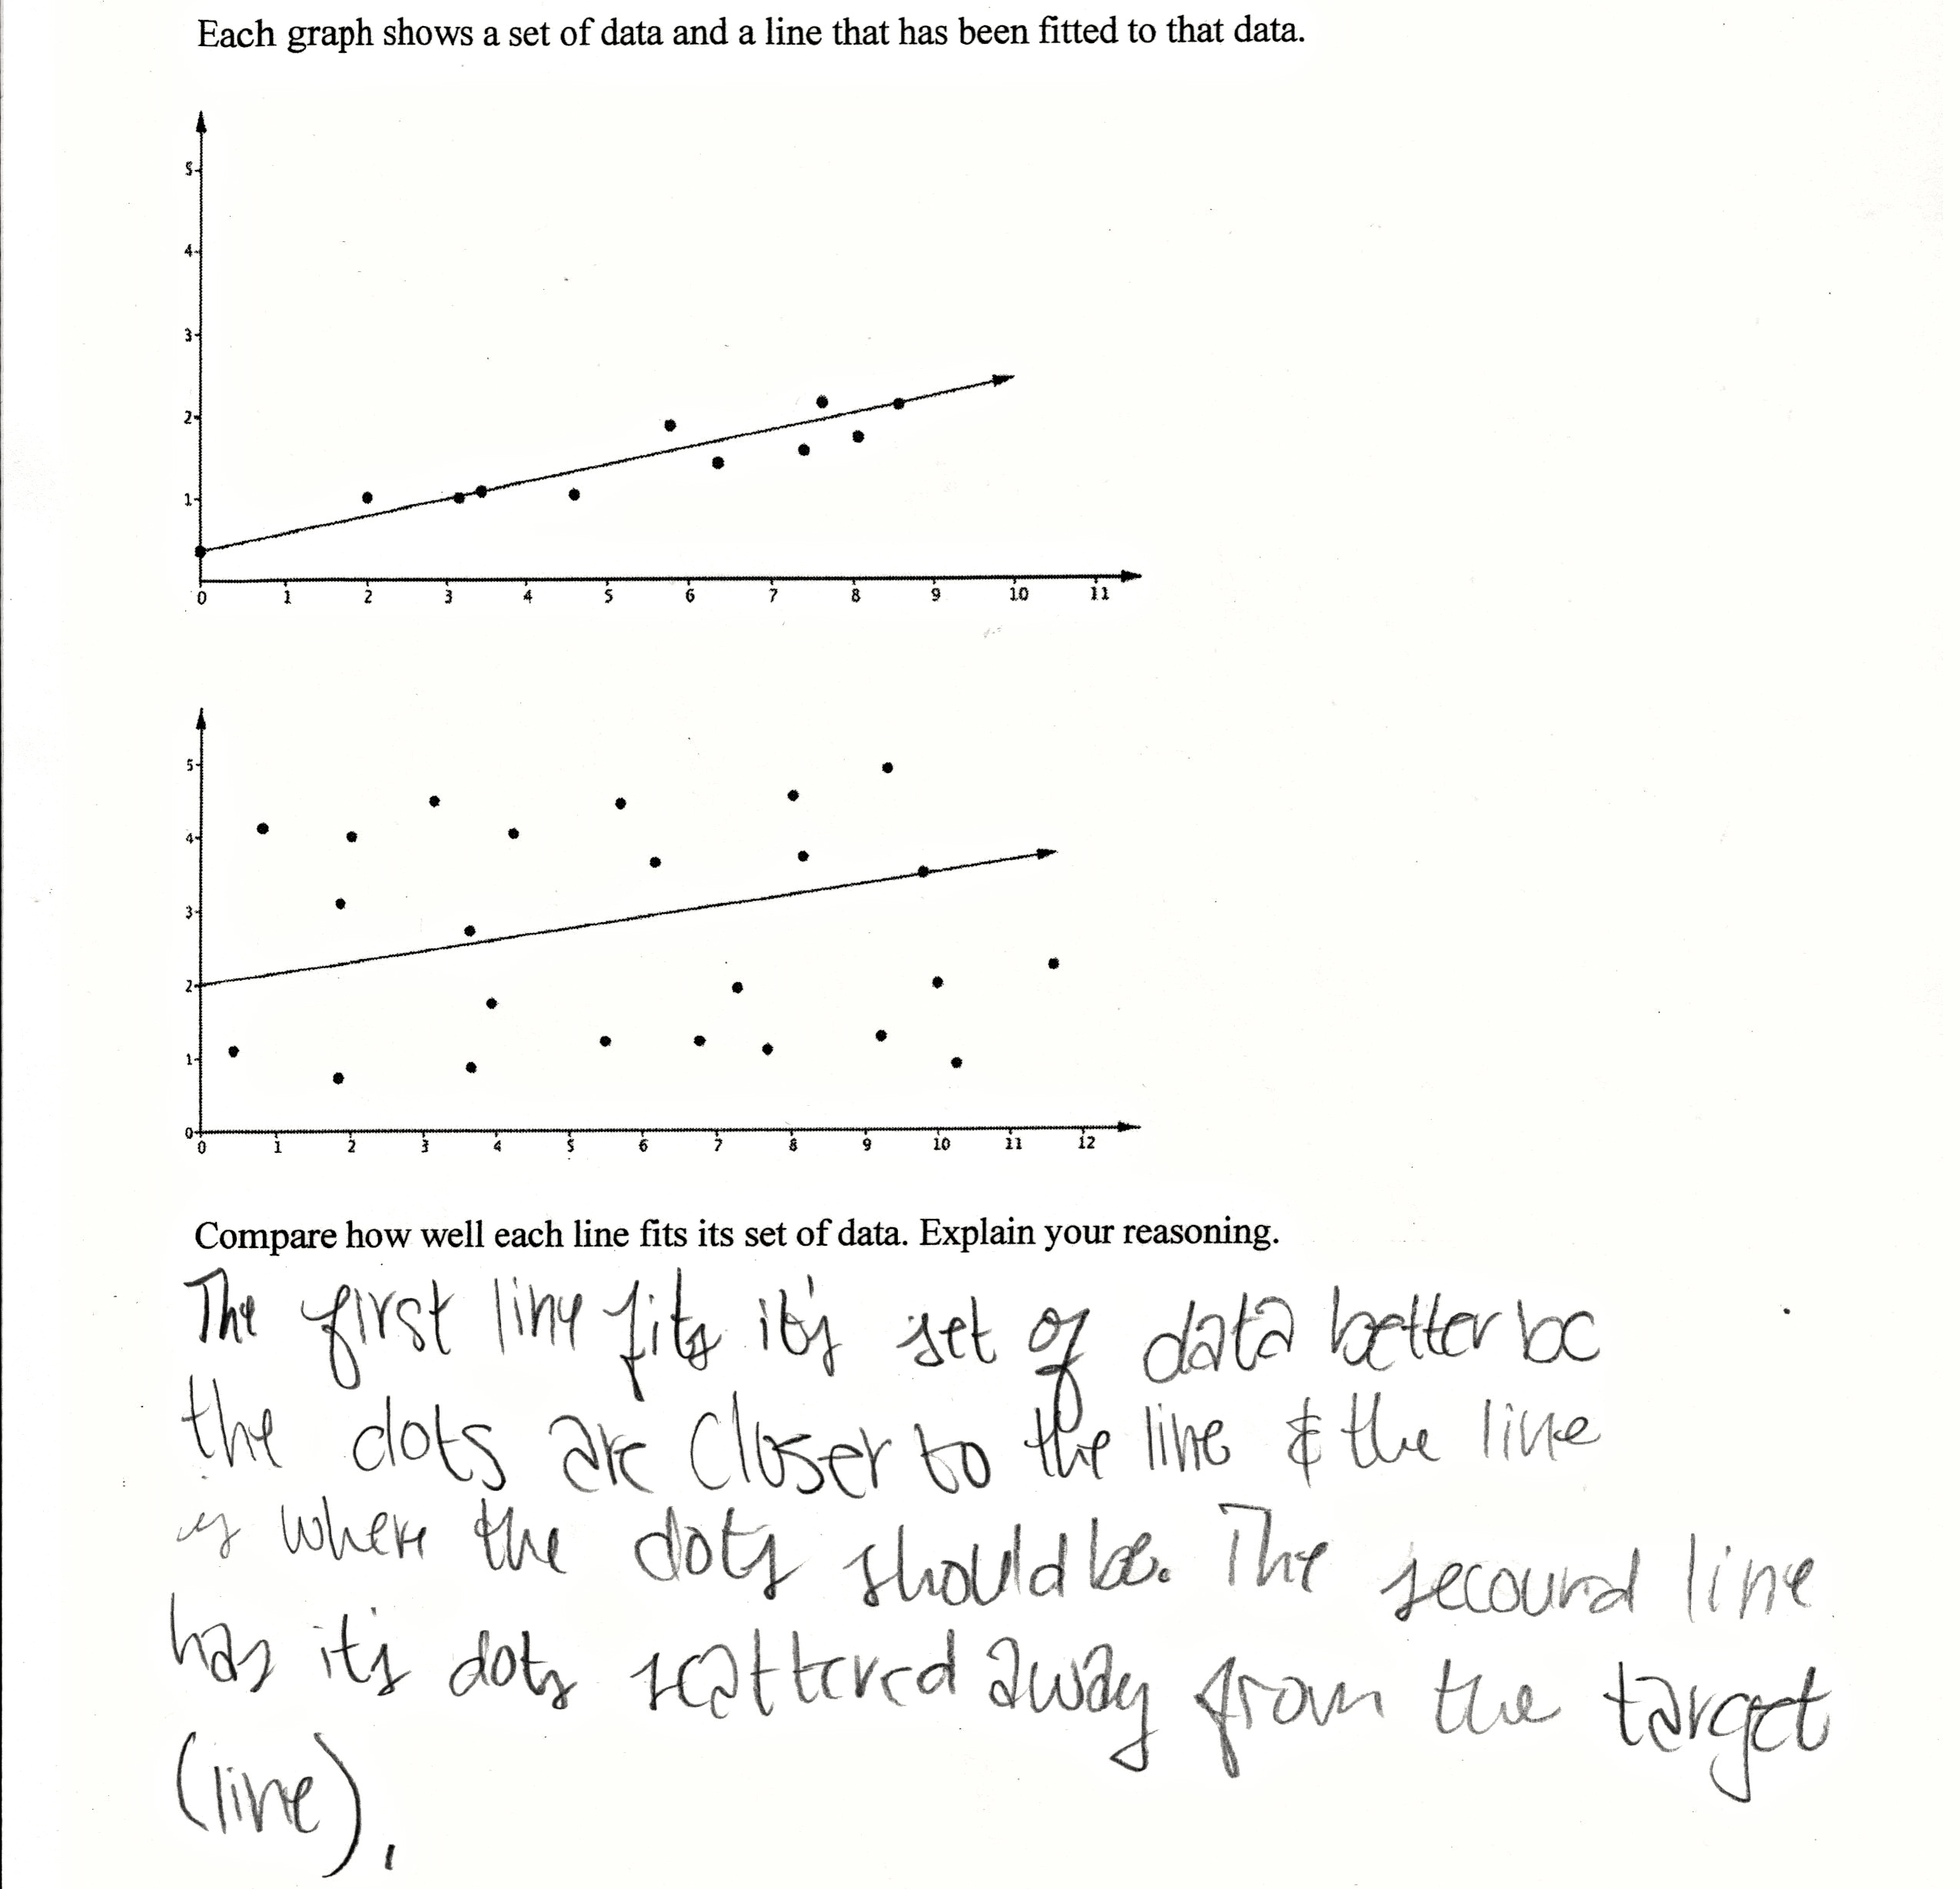 Each graph shows a set of data and a line that has been fitted to that data.
5
4
3
2
1
0 1 2 3 4 5 6 7 8 9 10 11
5
4
3
2
1
0
0 1 2 3 4 5 6 7 8 9 10 11 12
Compare how well each line fits its set of data. Explain your reasoning.
The first line fits it's set of data better bc
the dots are closer to the line & the line
is where the dots should be. The secound line
has it's dots scattered away from the target
(line).